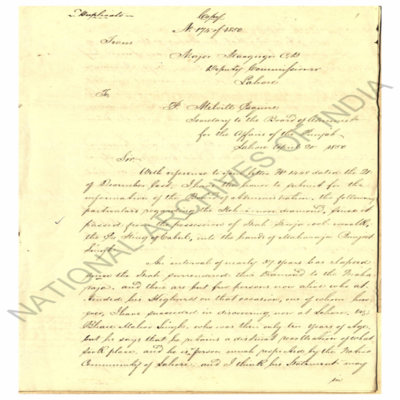 Duplicate Copy
No 174 of 1850
From
Major Macgregor CB
Deputy Commissioner
Lahore
To
P Melvill Esquire
Secretary to the Board of Administn
for the Affairs of the Punjab
Lahore April 20 1850
Sir
With reference to your letter No dated the 21
of December last, I have the honor to submit for the
information of the Board of Administration, the following
particulars regarding the Koh-i-noor diamond, since it
passed from the possession of Shah Shuja-ool-moolk,
the Ex King of Cabul, into the hands of Maharaja Runjeet
Singh.
An interval of nearly 37 Years has elapsed
since the Shah surrendered this Diamond to the Maha
raja, and there are but few persons now alive who at
tended his Highness on that occasion, one of whom how
ever, I have succeeded in discovering now at Lahore, viz
Bhaee Singh, who was then only ten Years of Age,
but he says that he retains a distinct recollection of what
took place, and he is a person much respected by the Native
Community of Lahore and I think his Statement may
NATIONAL ARCHIVES OF INDIA